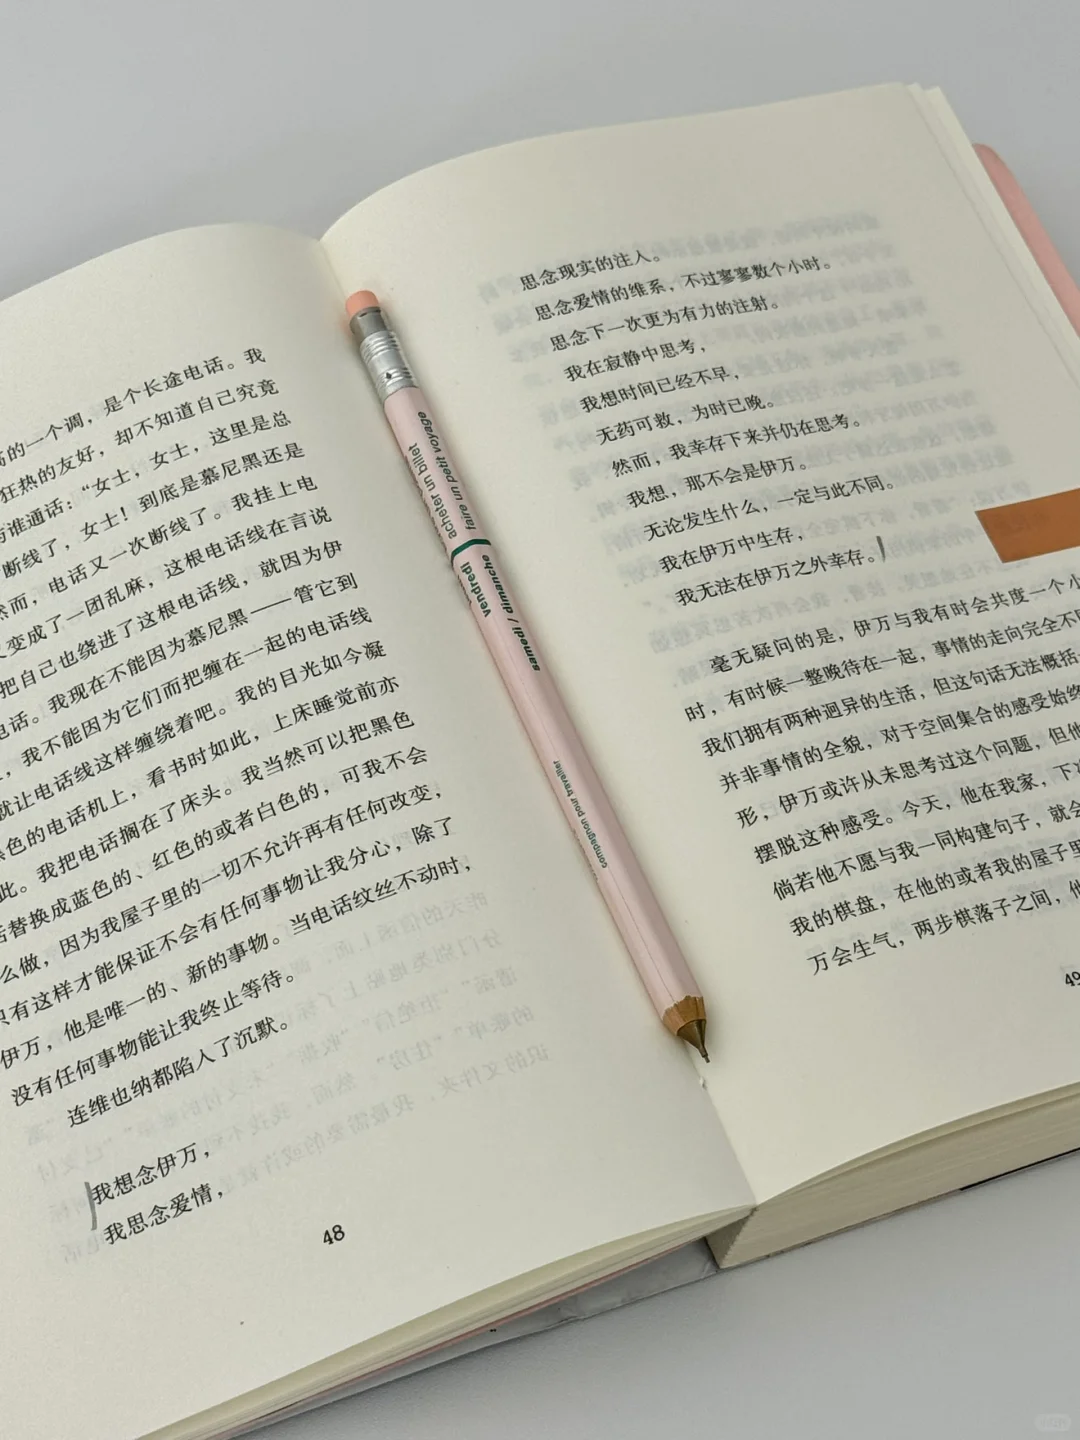 高的一个调，是个长途电话。我
狂热的友好，却不知道自己究竟
与谁通话：“女士，女士，这里是总
断线了，女士！到底是慕尼黑还是
然而，电话又一次断线了。我挂上电
变成了一团乱麻，这根电话线在言说
把自己也绕进了这根电话线，就因为伊
电话。我现在不能因为慕尼黑——管它到
，我不能因为它们而把缠在一起的电话线
就让电话线这样缠绕着吧。我的目光如今凝
色的电话机上，看书时如此，上床睡觉前亦
此。我把电话搁在了床头。我当然可以把黑色
话替换成蓝色的、红色的或者白色的，可我不会
么做，因为我屋子里的一切不允许再有任何改变，
只有这样才能保证不会有任何事物让我分心，除了
伊万，他是唯一的、新的事物。当电话纹丝不动时，
没有任何事物能让我终止等待。
连维也纳都陷入了沉默。
我想念伊万，
我思念爱情，
48
acheter un billet
faire un petit voyage
vendredi
samedi / dimanche
compagnon pour travailler
思念现实的注入。
思念爱情的维系，不过寥寥数个小时。
思念下一次更为有力的注射。
我在寂静中思考，
我想时间已经不早，
无药可救，为时已晚。
然而，我幸存下来并仍在思考。
我想，那不会是伊万。
无论发生什么，一定与此不同。
我在伊万中生存，
我无法在伊万之外幸存。
毫无疑问的是，伊万与我有时会共度一个小
时，有时候一整晚待在一起，事情的走向完全不同
我们拥有两种迥异的生活，但这句话无法概括
并非事情的全貌，对于空间集合的感受始终
形，伊万或许从未思考过这个问题，但他
摆脱这种感受。今天，他在我家，下次
倘若他不愿与我一同构建句子，就会
我的棋盘，在他的或者我的屋子里
万会生气，两步棋落子之间，他
49